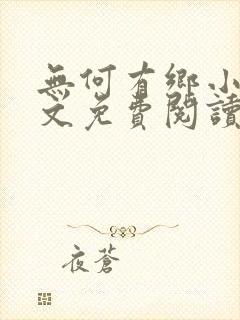 無何有鄉小
文免費閱讀
夜蒼